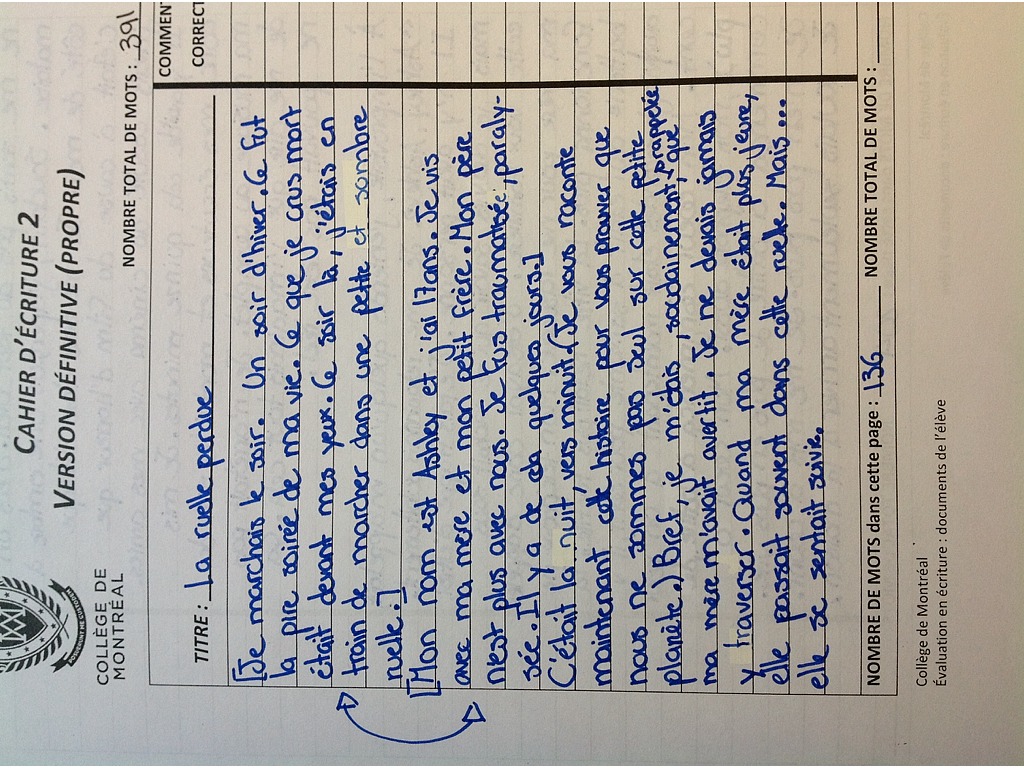 CAHIER D'ÉCRITURE 2
VERSION DÉFINITIVE (PROPRE)
COLLÈGE DE
MONTRÉAL
NOMBRE TOTAL DE MOTS : 391
TITRE : La ruelle perdue
COMMENT
CORRECT
[Je marchais le soir. Un soir d'hiver. Ce fut
la pire soirée de ma vie. Ce que je crus mort
était devant mes yeux. Ce soir là, j'étais en
train de marcher dans une petite et sombre
ruelle.]
[Mon nom est Ashley et j'ai 17 ans. Je vis
avec ma mère et mon petit frère. Mon père
n'est plus avec nous. Je fus traumatisée, paraly-
sée. Il y a de cela quelques jours.]
C'était la nuit, vers minuit. (Je vous raconte
maintenant cette histoire pour vous prouver que
nous ne sommes pas seul sur cette petite
planète.) Bref, je m'étais, soudainement, rappelée que
ma mère m'avait avertit. Je ne devais jamais
y traverser. Quand ma mère était plus jeune,
elle passait souvent dans cette ruelle. Mais...
elle se sentait suivie.
NOMBRE DE MOTS dans cette page : 136 NOMBRE TOTAL DE MOTS :
Collège de Montréal
Évaluation en écriture : documents de l'élève